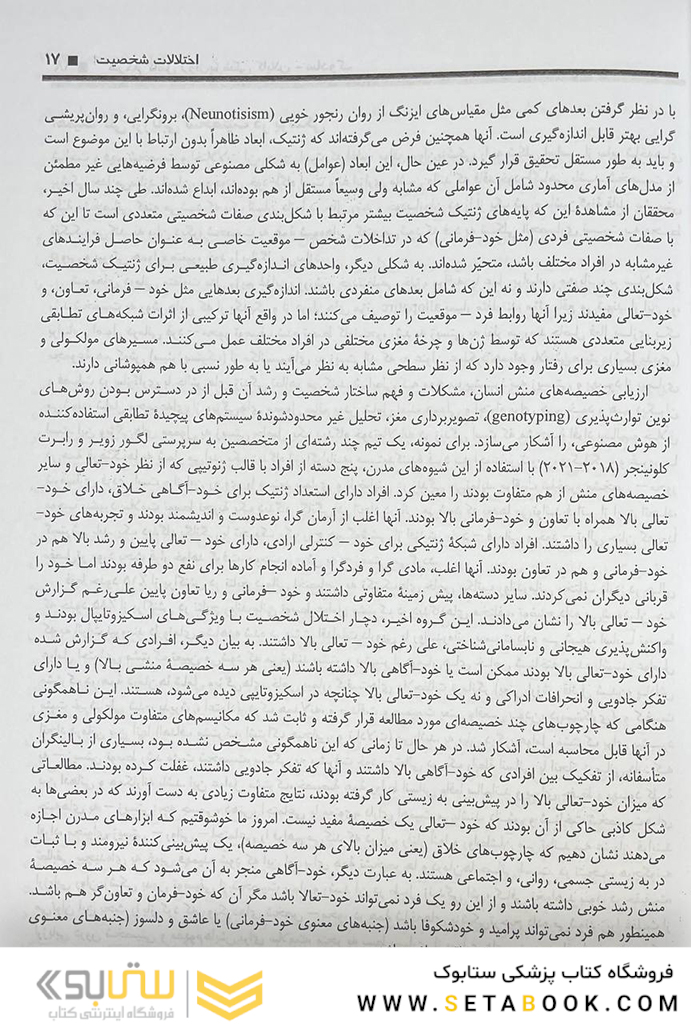 اختلالات شخصیت ■ ۱۷
با در نظر گرفتن بعدهای کمی مثل مقیاس‌های ایزنگ از روان رنجور خویی (Neunotisism)، برونگرایی، و روان‌پریشی
گرایی بهتر قابل اندازه‌گیری است. آنها همچنین فرض می‌گرفته‌اند که ژنتیک، ابعاد ظاهراً بدون ارتباط با این موضوع است
و باید به طور مستقل تحقیق قرار گیرد. در عین حال، این ابعاد (عوامل) به شکلی مصنوعی توسط فرضیه‌هایی غیر مطمئن
از مدل‌های آماری محدود شامل آن عواملی که مشابه ولی وسیعاً مستقل از هم بوده‌اند، ابداع شده‌اند. طی چند سال اخیر،
محققان از مشاهدهٔ این که پایه‌های ژنتیک شخصیت بیشتر مرتبط با شکل‌بندی صفات شخصیتی متعددی است تا این که
با صفات شخصیتی فردی (مثل خود-فرمانی) که در تداخلات شخص – موقعیت خاصی به عنوان حاصل فرایندهای
غیرمشابه در افراد مختلف باشد، متحیّر شده‌اند. به شکلی دیگر، واحدهای اندازه‌گیری طبیعی برای ژنتیک شخصیت،
شکل‌بندی چند صفتی دارند و نه این که شامل بعدهای منفردی باشند. اندازه‌گیری بعدهایی مثل خود – فرمانی، تعاون، و
خود-تعالی مفیدند زیرا آنها روابط فرد – موقعیت را توصیف می‌کنند؛ اما در واقع آنها ترکیبی از اثرات شبکه‌های تطابقی
زیربنایی متعددی هستند که توسط ژن‌ها و چرخهٔ مغزی مختلفی در افراد مختلف عمل می‌کنند. مسیرهای مولکولی و
مغزی بسیاری برای رفتار وجود دارد که از نظر سطحی مشابه به نظر می‌آیند یا به طور نسبی با هم همپوشانی دارند.
ارزیابی خصیصه‌های منش انسان، مشکلات و فهم ساختار شخصیت و رشد آن قبل از در دسترس بودن روش‌های
نوین توارث‌پذیری (genotyping)، تصویربرداری مغز، تحلیل غیر محدودشوندهٔ سیستم‌های پیچیدهٔ تطابقی استفاده‌کننده
از هوش مصنوعی، را آشکار می‌سازد. برای نمونه، یک تیم چند رشته‌ای از متخصصین به سرپرستی لگور زویر و رابرت
کلونینجر (۲۰۱۸-۲۰۲۱) با استفاده از این شیوه‌های مدرن، پنج دسته از افراد با قالب ژنوتیپی که از نظر خود-تعالی و سایر
خصیصه‌های منش از هم متفاوت بودند را معین کرد. افراد دارای استعداد ژنتیک برای خود-آگاهی خلاق، دارای خود-
تعالی بالا همراه با تعاون و خود-فرمانی بالا بودند. آنها اغلب از آرمان گرا، نوعدوست و اندیشمند بودند و تجربه‌های خود-
تعالی بسیاری را داشتند. افراد دارای شبکهٔ ژنتیکی برای خود – کنترلی ارادی، دارای خود – تعالی پایین و رشد بالا هم در
خود-فرمانی و هم در تعاون بودند. آنها اغلب، مادی گرا و فردگرا و آماده انجام کارها برای نفع دو طرفه بودند اما خود را
قربانی دیگران نمی‌کردند. سایر دسته‌ها، پیش زمینهٔ متفاوتی داشتند و خود –فرمانی و ریا تعاون پایین علی‌رغم گزارش
خود – تعالی بالا را نشان می‌دادند. این گروه اخیر، دچار اختلال شخصیت با ویژگی‌های اسکیزوتایپال بودند و
واکنش‌پذیری هیجانی و نابسامانی‌شناختی، علی رغم خود – تعالی بالا داشتند. به بیان دیگر، افرادی که گزارش شده
دارای خود-تعالی بالا بودند ممکن است یا خود-آگاهی بالا داشته باشند (یعنی هر سه خصیصهٔ منشی بالا) و یا دارای
تفکر جادویی و انحرافات ادراکی و نه یک خود-تعالی بالا چنانچه در اسکیزوتایپی دیده می‌شود، هستند. این ناهمگونی
هنگامی که چارچوب‌های چند خصیصه‌ای مورد مطالعه قرار گرفته و ثابت شد که مکانیسم‌های متفاوت مولکولی و مغزی
در آنها قابل محاسبه است، آشکار شد. در هر حال تا زمانی که این ناهمگونی مشخص نشده بود، بسیاری از بالینگران
متأسفانه، از تفکیک بین افرادی که خود-آگاهی بالا داشتند و آنها که تفکر جادویی داشتند، غفلت کرده بودند. مطالعاتی
که میزان خود-تعالی بالا را در پیش‌بینی به زیستی کار گرفته بودند، نتایج متفاوت زیادی به دست آورند که در بعضی‌ها به
شکل کاذبی حاکی از آن بودند که خود –تعالی یک خصیصهٔ مفید نیست. امروز ما خوشوقتیم که ابزارهای مدرن اجازه
می‌دهند نشان دهیم که چارچوب‌های خلاق (یعنی میزان بالای هر سه خصیصه)، یک پیش‌بینی‌کنندهٔ نیرومند و با ثبات
در به زیستی جسمی، روانی، و اجتماعی هستند. به عبارت دیگر، خود-آگاهی منجر به آن می‌شود که هر سه خصیصهٔ
منش رشد خوبی داشته باشند و از این رو یک فرد نمی‌تواند خود-تعالا باشد مگر آن که خود-فرمان و تعاون‌گر هم باشد.
همینطور هم فرد نمی‌تواند پرامید و خودشکوفا باشد (جنبه‌های معنوی خود-فرمانی) یا عاشق و دلسوز (جنبه‌های معنوی
فروشگاه کتاب پزشکی ستابوک
WWW.SETABOOK.COM
ستابوک
فروشگاه اینترنتی کتاب